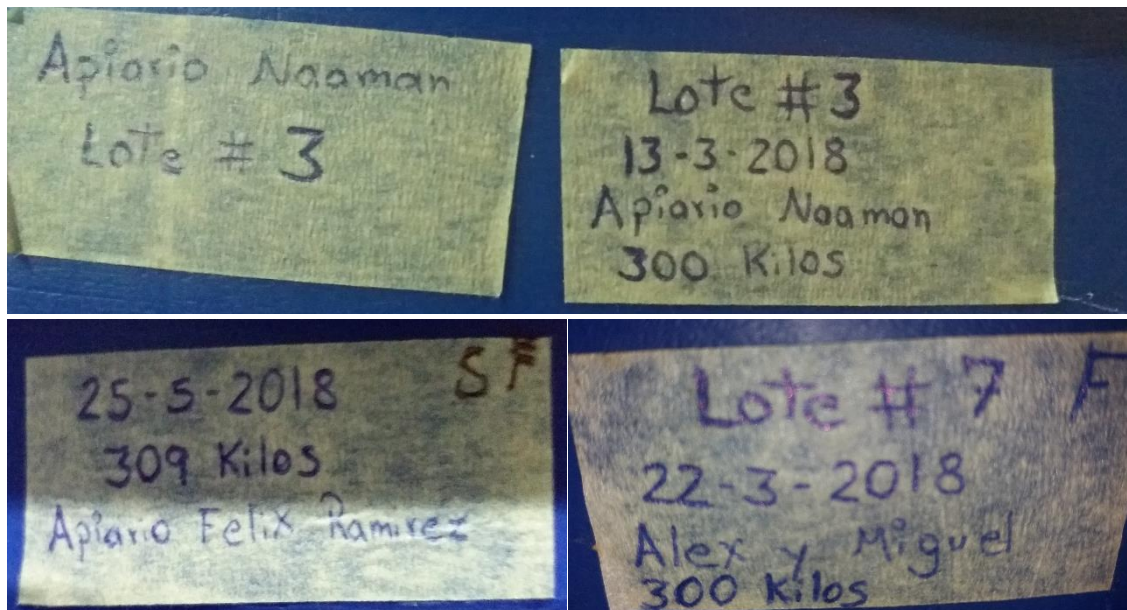 Apiario Naaman
Lote # 3
Lote # 3
13-3-2018
Apiario Naaman
300 Kilos
SF
25-5-2018
309 Kilos
Apiario Felix Ramirez
Lote # 7 F
22-3-2018
Alex y Miguel
300 Kilos